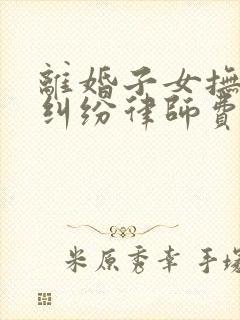 離婚子女撫
糾紛律師費
米原秀幸 手塚